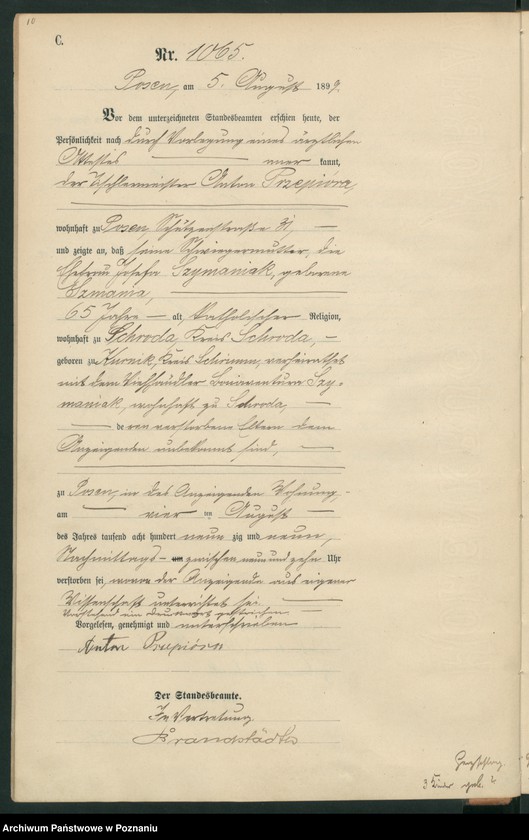 10
C.
Nr. 1065.
Posen, am 5. August 1899.
Vor dem unterzeichneten Standesbeamten erschien heute, der
Persönlichkeit nach durch Vorlegung eines ärztlichen
Attestes aner kannt,
der Tischlermeister Anton Przepióra,
wohnhaft zu Posen, Schützenstraße 31,
und zeigte an, daß seine Schwiegermutter, die
Ehefrau Josefa Szymaniak, geborene
Szmania,
65 Jahre alt, katholischer Religion,
wohnhaft zu Schroda, Kreis Schroda,
geboren zu Kurnik, Kreis Schrimm, verheirathet
mit dem Viehhändler Bonaventura Szy-
maniak, wohnhaft zu Schroda,
deren verstorbene Eltern dem
Anzeigenden unbekannt sind,
zu Posen, in des Anzeigenden Wohnung
am vier ten August
des Jahres tausend acht hundert neun zig und neun,
Nachmittags um zwischen neun und zehn Uhr
verstorben sei, wovon der Anzeigende aus eigener
Wissenschaft unterrichtet sei.
Vorstehend ein Druckwort gestrichen.
Vorgelesen, genehmigt und unterschrieben
Anton Przepióra
Der Standesbeamte.
In Vertretung
Brandstädter
3 Kinder